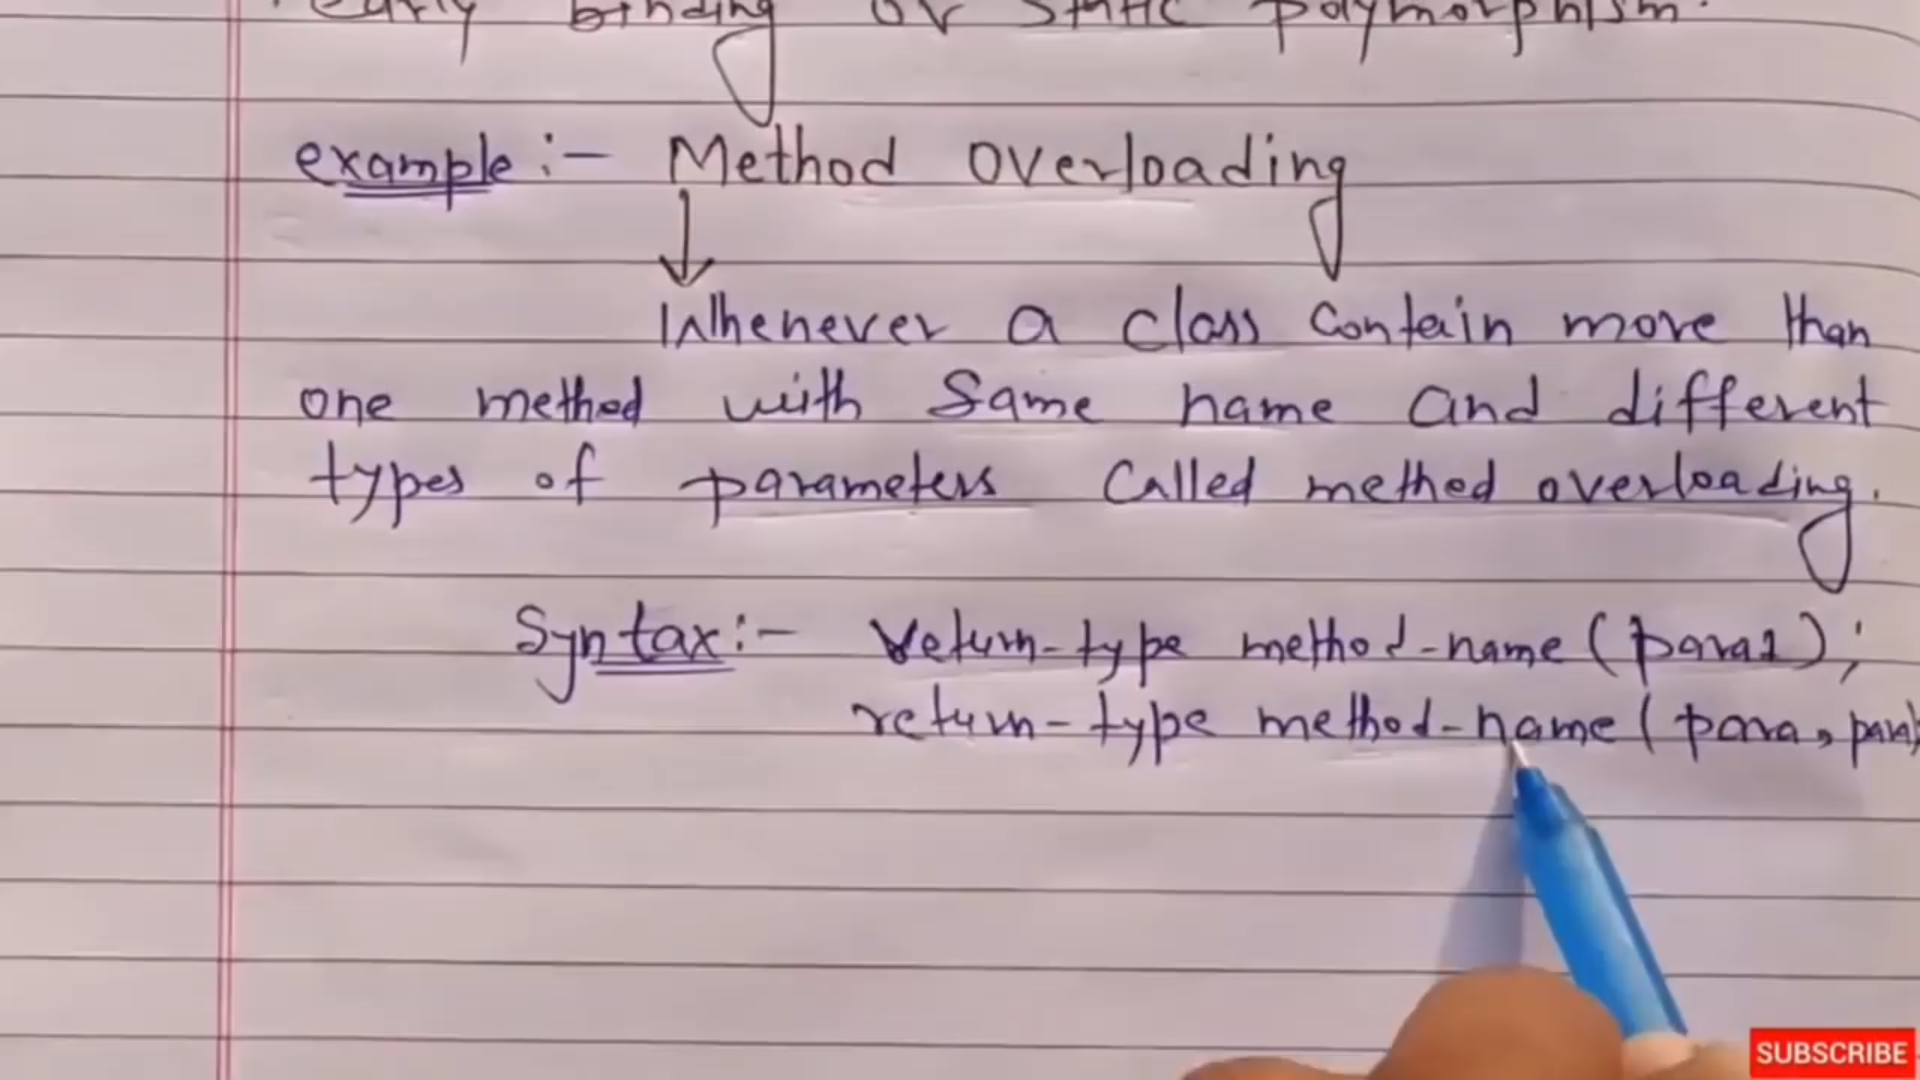 early binding or static polymorphism.
example:- Method Overloading
Whenever a class contain more than
one method with same name and different
types of parameters called method overloading.
Syntax:- return-type method-name (para1);
return-type method-name (para, para)
SUBSCRIBE